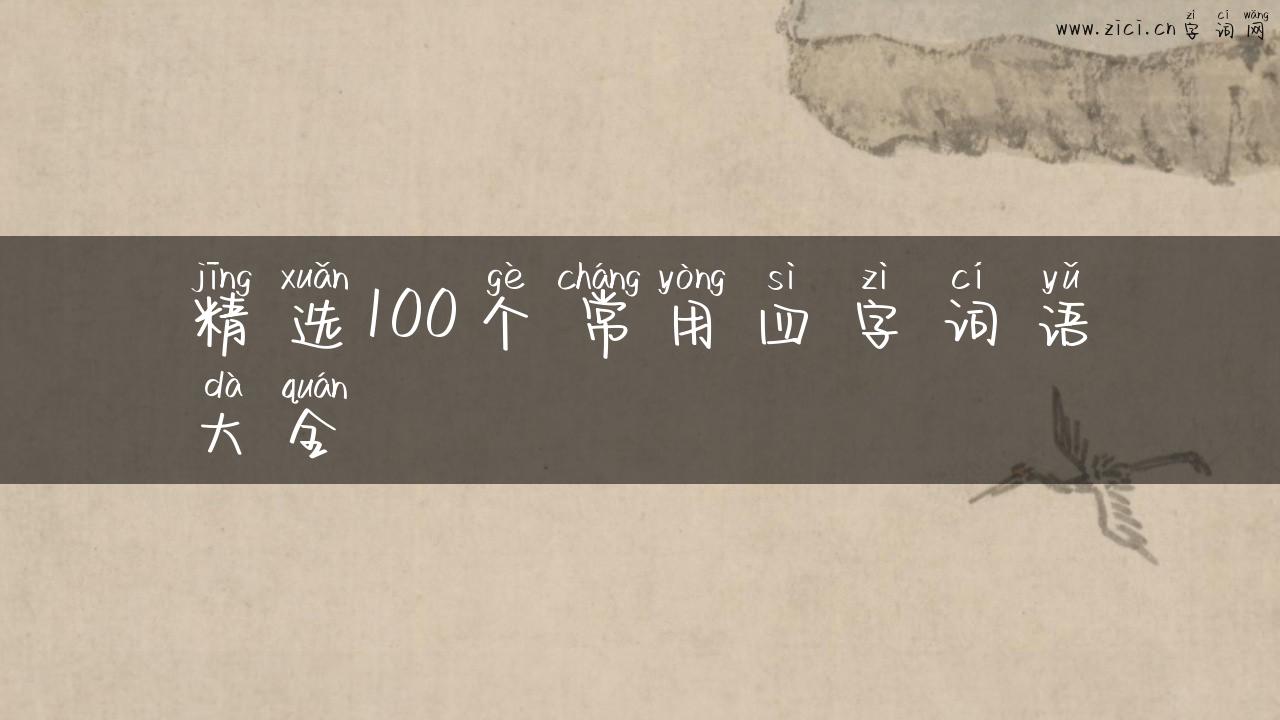 zì cí wǎng
www.zici.cn字词网
jīng xuǎn gè cháng yòng sì zì cí yǔ
精选100个常用四字词语
dà quán
大全